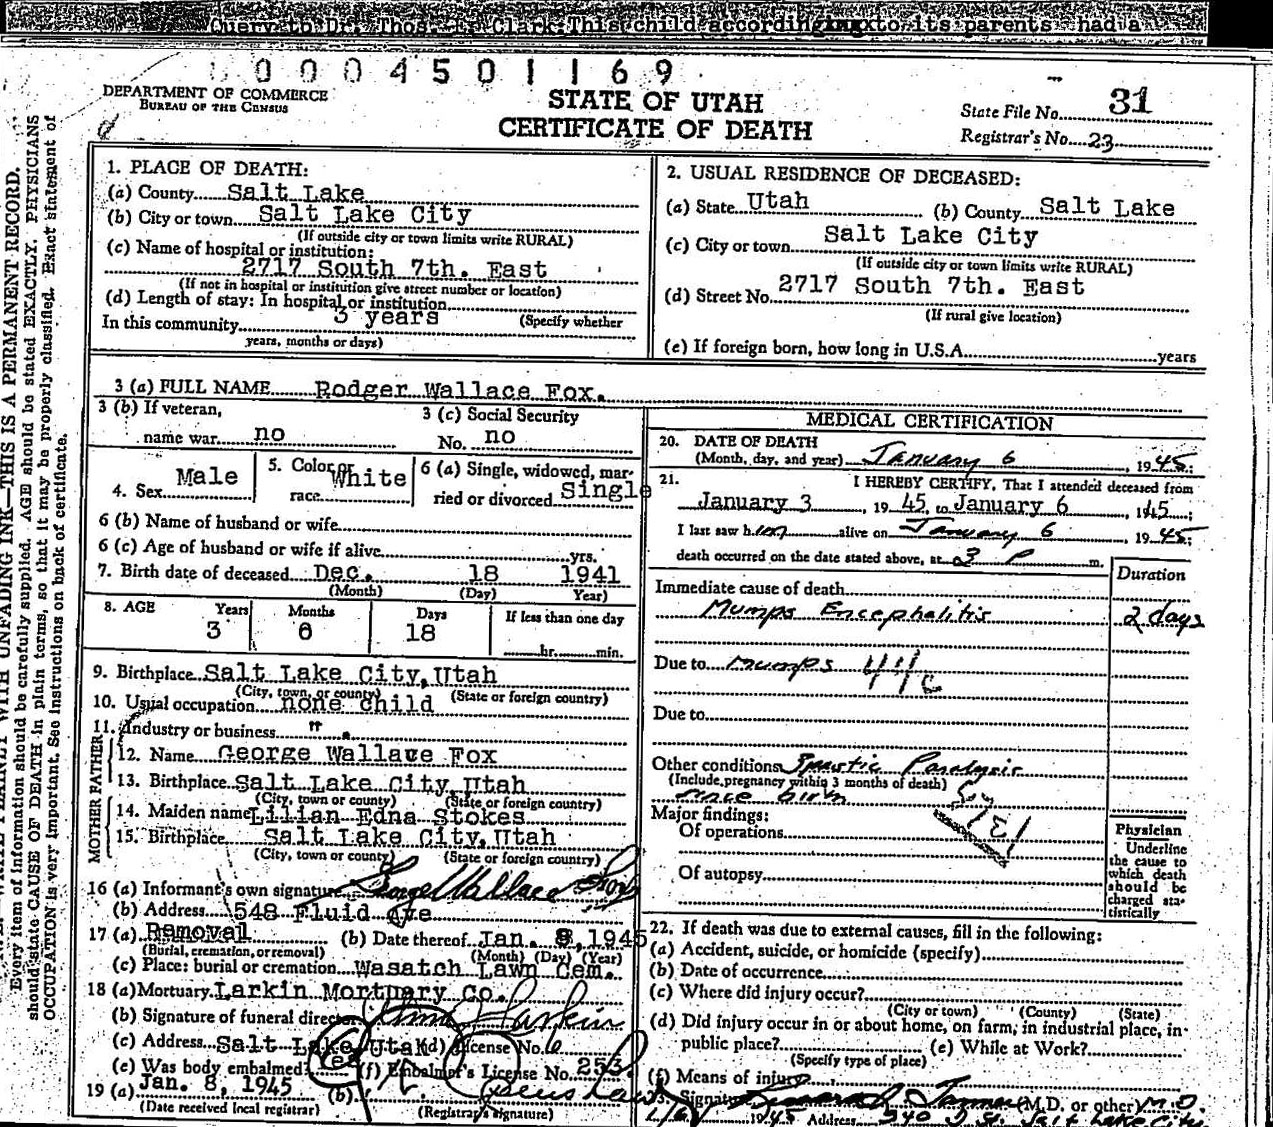 Query to Dr. Thos. Clark. This child according to its parents had a
0 0 0 4 5 0 1 1 6 9
DEPARTMENT OF COMMERCE
BUREAU OF THE CENSUS
STATE OF UTAH
CERTIFICATE OF DEATH
State File No. 31
Registrar's No. 23
Every item of information should be carefully supplied. AGE should be stated EXACTLY. PHYSICIANS
should state CAUSE OF DEATH in plain terms, so that it may be properly classified. Exact statement of
OCCUPATION is very important. See instructions on back of certificate.
WITH UNFADING INK—THIS IS A PERMANENT RECORD.
1. PLACE OF DEATH:
(a) County Salt Lake
(b) City or town Salt Lake City
(If outside city or town limits write RURAL)
(c) Name of hospital or institution:
2717 South 7th. East
(If not in hospital or institution give street number or location)
(d) Length of stay: In hospital or institution
In this community 3 years (Specify whether
years, months or days)
2. USUAL RESIDENCE OF DECEASED:
(a) State Utah (b) County Salt Lake
(c) City or town Salt Lake City
(If outside city or town limits write RURAL)
(d) Street No. 2717 South 7th. East
(If rural give location)
(e) If foreign born, how long in U.S.A. years
3 (a) FULL NAME Rodger Wallace Fox.
3 (b) If veteran,
name war no
3 (c) Social Security
No. no
4. Sex Male
5. Color or
race White
6 (a) Single, widowed, mar-
ried or divorced Single
6 (b) Name of husband or wife
6 (c) Age of husband or wife if alive yrs.
7. Birth date of deceased Dec. 18 1941
(Month) (Day) Year)
8. AGE Years Months Days If less than one day
3 0 18 hr. min.
9. Birthplace Salt Lake City, Utah
(City, town, or county) (State or foreign country)
10. Usual occupation none child
11. Industry or business " .
FATHER
12. Name George Wallave Fox
13. Birthplace Salt Lake City, Utah
(City, town or county) (State or foreign country)
MOTHER
14. Maiden name Lilian Edna Stokes
15. Birthplace Salt Lake City, Utah
(City, town or county) (State or foreign country)
16 (a) Informant's own signature George Wallace Fox
(b) Address 548 Fluid Ave
17 (a) Removal (b) Date thereof Jan. 8, 1945
(Burial, cremation, or removal) (Month) (Day) (Year)
(c) Place: burial or cremation Wasatch Lawn Cem.
18 (a) Mortuary Larkin Mortuary Co.
(b) Signature of funeral director Larkin
(c) Address Salt Lake Utah (d) License No.
(e) Was body embalmed? (f) Embalmer's License No. 253
19 (a) Jan. 8, 1945 (b)
(Date received local registrar) (Registrar's signature)
MEDICAL CERTIFICATION
20. DATE OF DEATH
(Month, day, and year) January 6, 1945;
21. I HEREBY CERTIFY, That I attended deceased from
January 3, 1945, to January 6, 145;
I last saw him alive on January 6, 1945;
death occurred on the date stated above, at 3 P m.
Duration
Immediate cause of death
Mumps Encephalitis 2 days
Due to Mumps
Due to
Other conditions Spastic Paralysis
(Include pregnancy within 3 months of death)
since birth
Major findings:
Of operations
Of autopsy
Physician
Underline
the cause to
which death
should be
charged sta-
tistically
22. If death was due to external causes, fill in the following:
(a) Accident, suicide, or homicide (specify)
(b) Date of occurrence
(c) Where did injury occur?
(City or town) (County) (State)
(d) Did injury occur in or about home, on farm, in industrial place, in-
public place? (e) While at Work?
(Specify type of place)
(f) Means of injury
Signature Tanner (M.D. or other) M.D.
1/6 1945 Address Salt Lake City